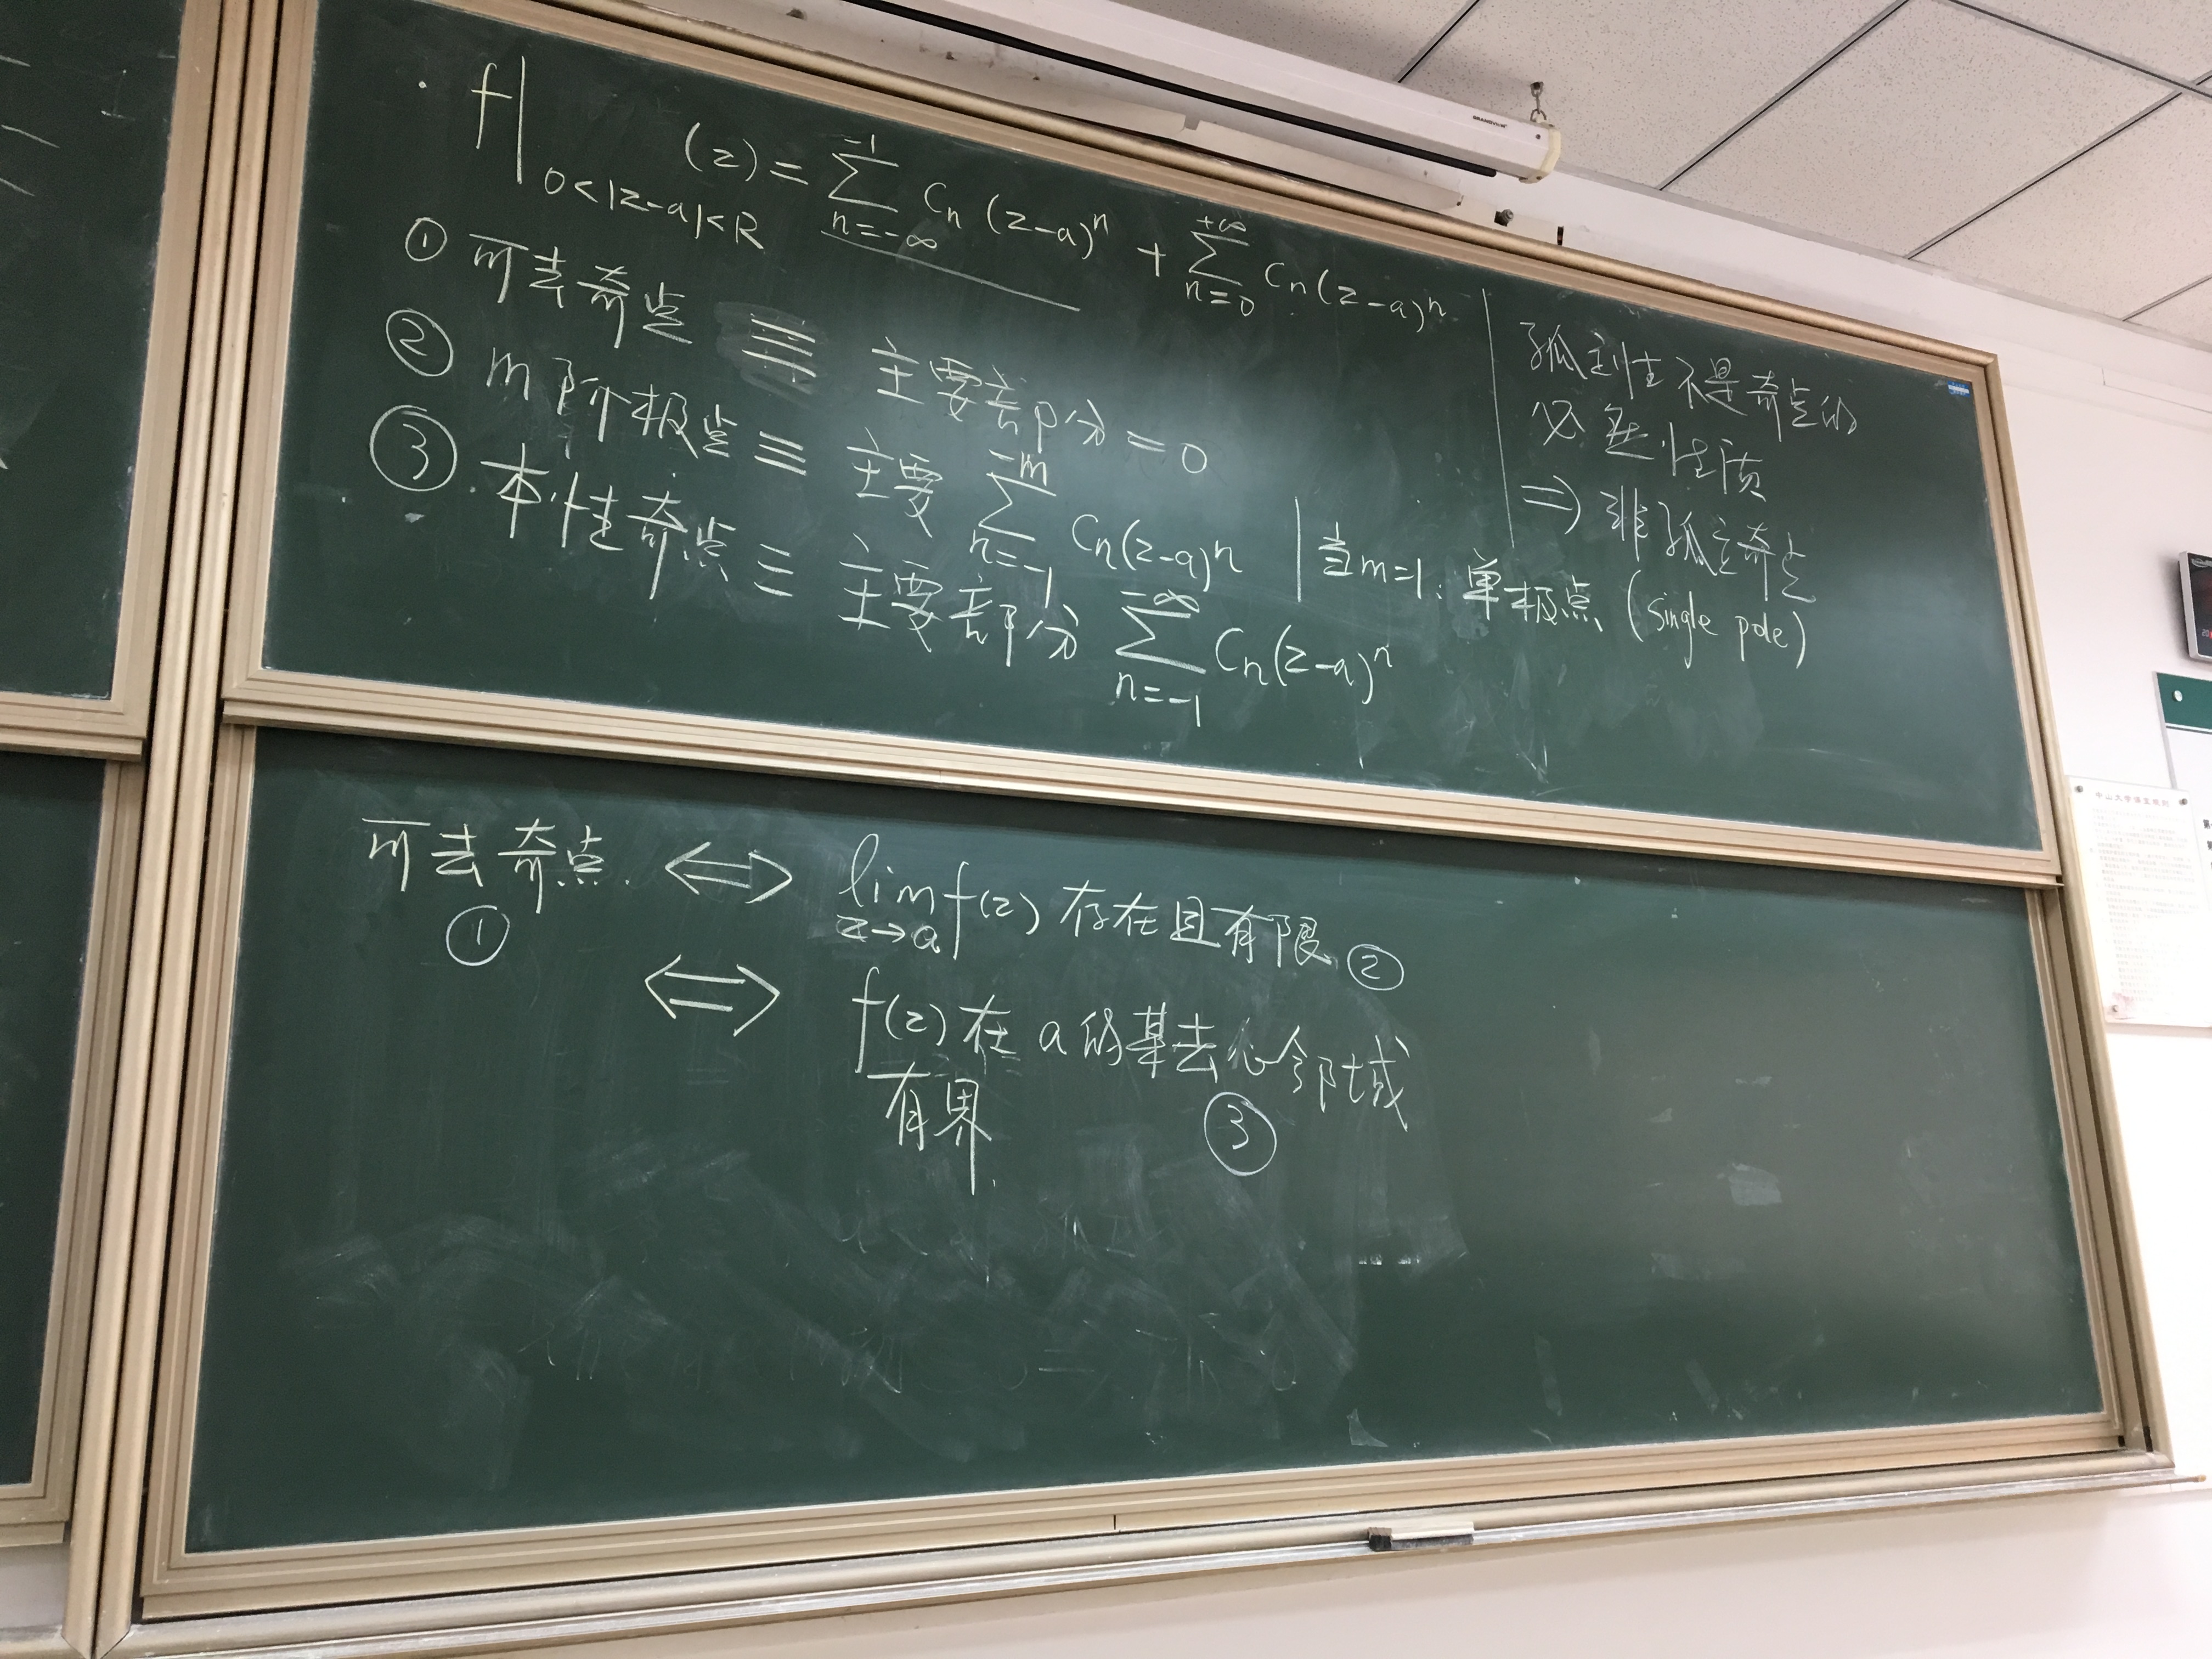 f|_{0<|z-a|<R} (z) = \sum_{n=-∞}^{-1} C_n (z-a)^n + \sum_{n=0}^{+∞} C_n (z-a)^n
① 可去奇点 ≡ 主要部分 = 0
② m阶极点 ≡ 主要 \sum_{n=-1}^{-m} C_n (z-a)^n | 当m=1: 单极点 (single pole)
③ 本性奇点 ≡ 主要部分 \sum_{n=-1}^{-∞} C_n (z-a)^n
孤立性不是奇点的
必 性质
⇒ 非孤立奇点
可去奇点. ⟺ lim_{z→a} f(z) 存在且有限 ②
①
⟺ f(z) 在 a 的某去心邻域
有界. ③
GRANDVIEW
中山大学课室规则